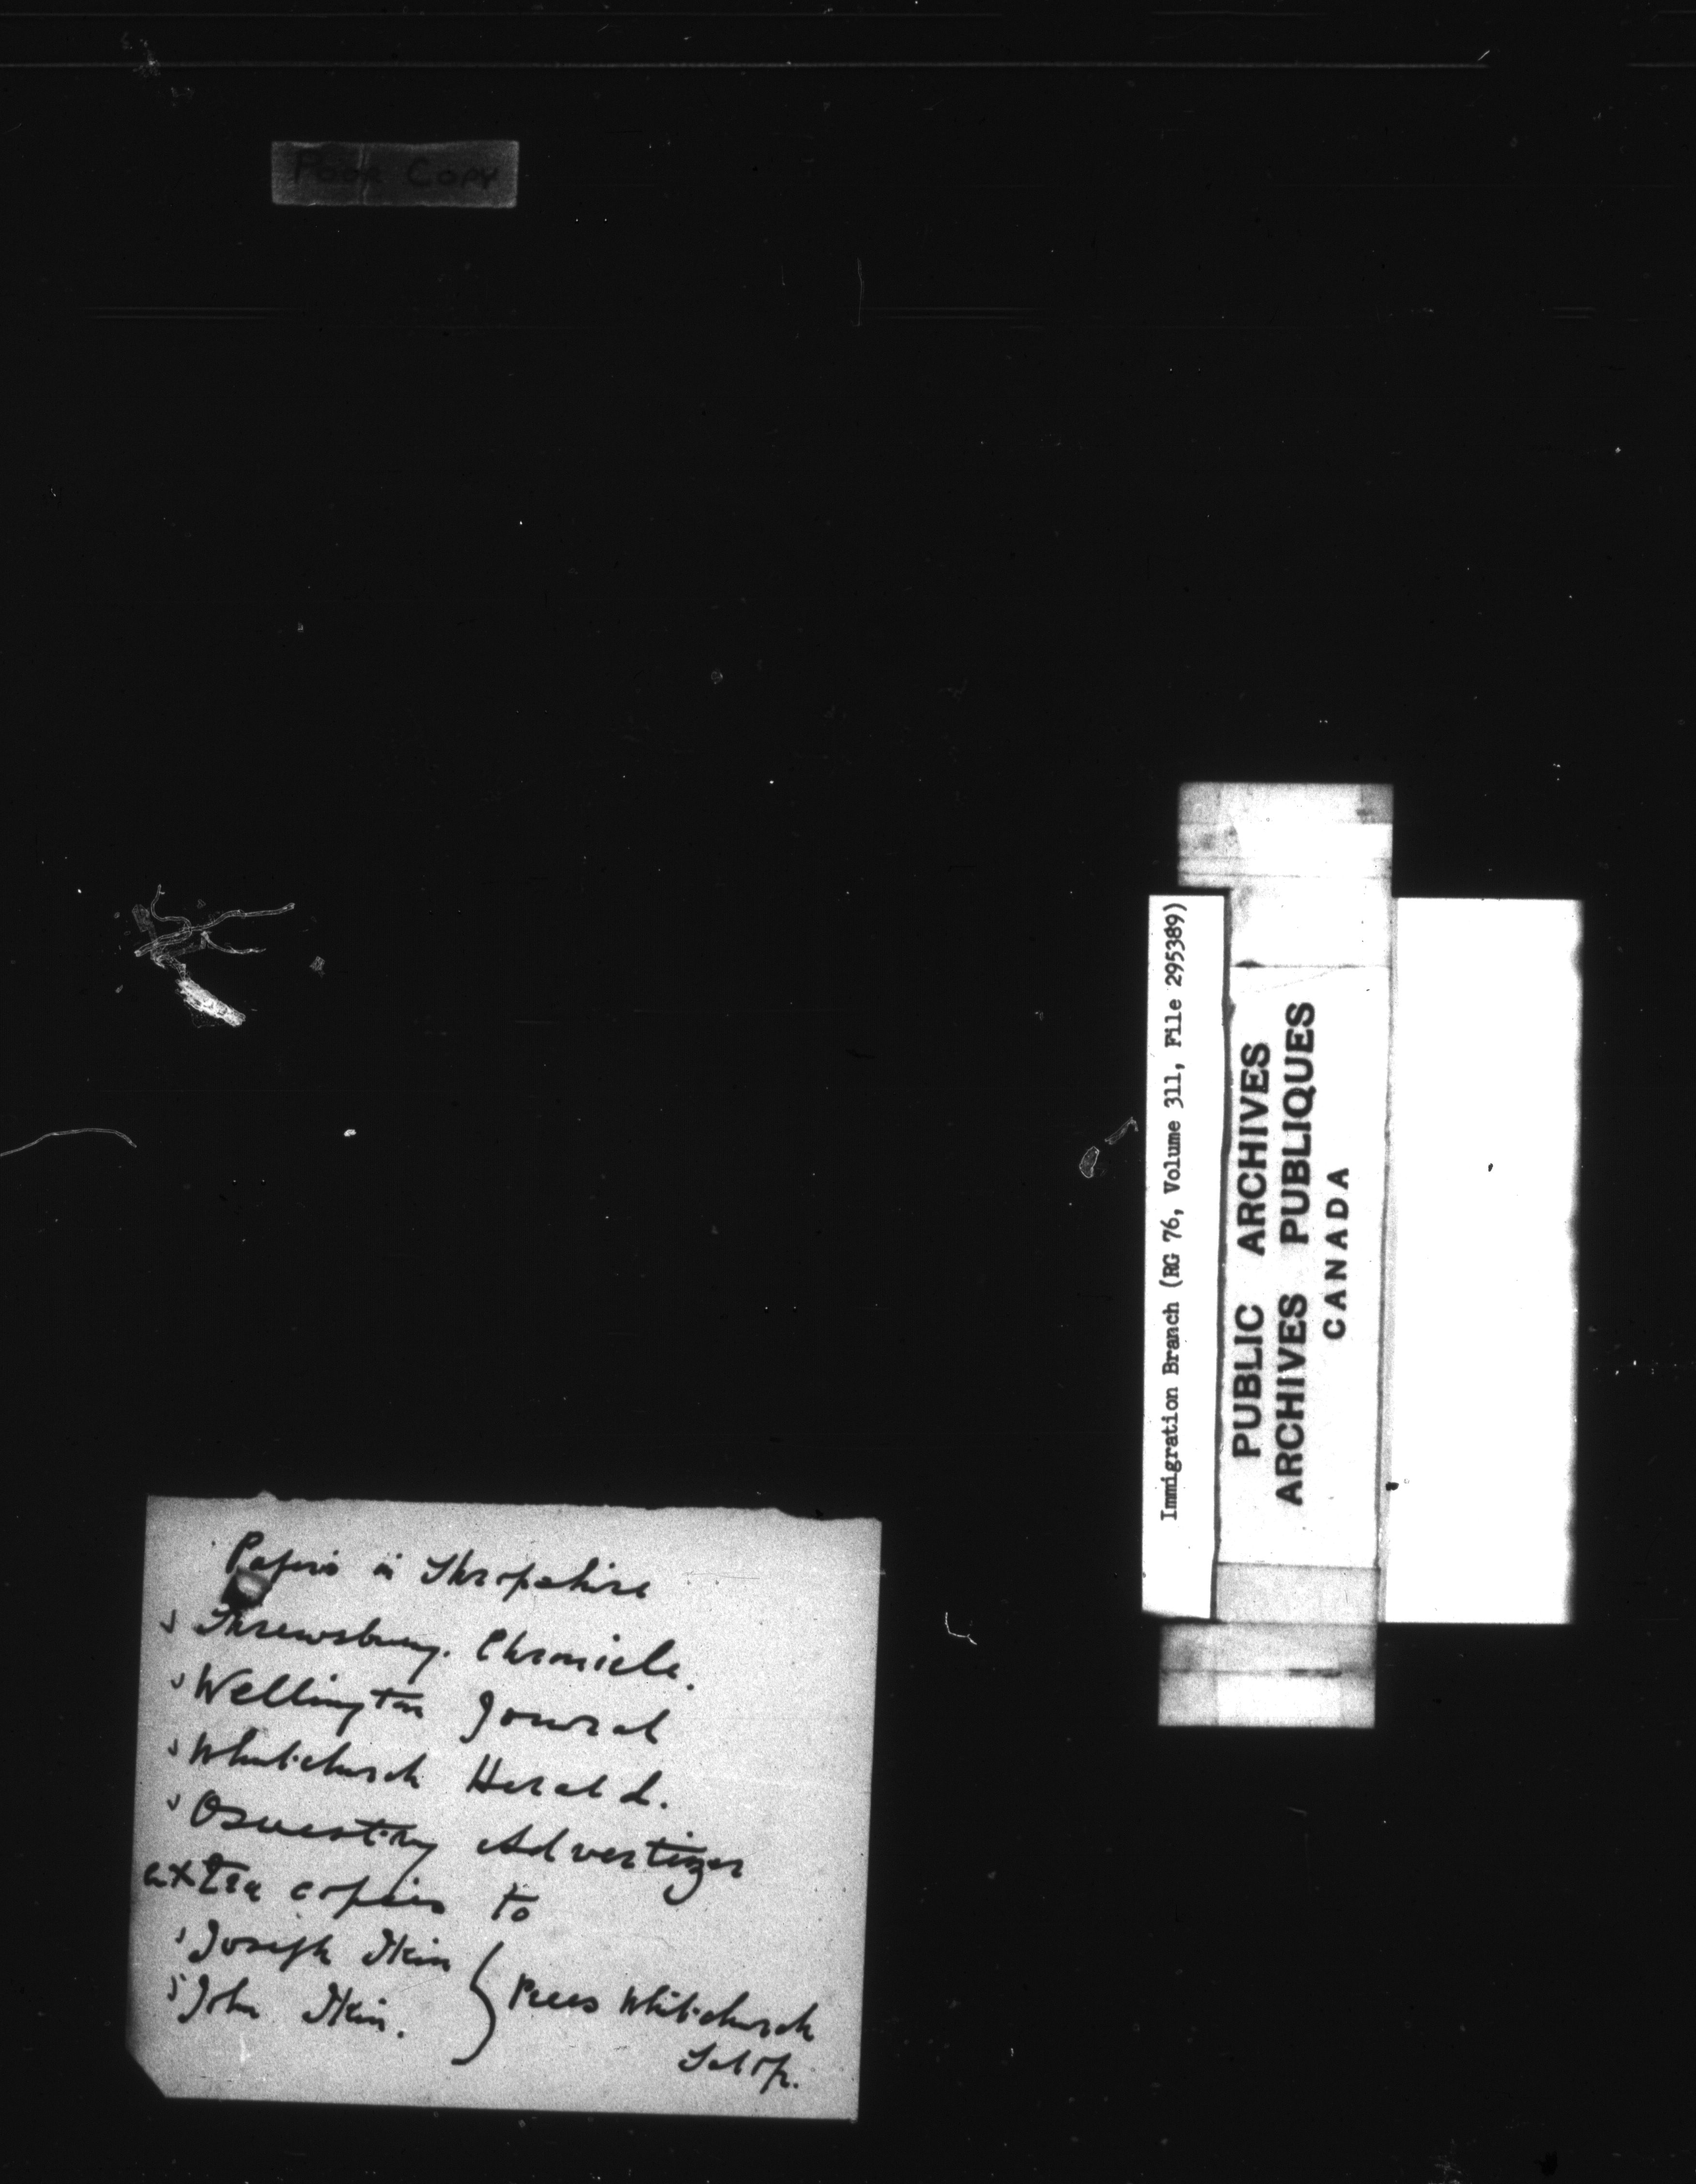 Poor Copy
Immigration Branch (RG 76, Volume 311, File 295389)
PUBLIC ARCHIVES
ARCHIVES PUBLIQUES
CANADA
Papers in Shropshire
Shrewsbury. Chronicle.
Wellington Journal
Whitchurch Herald.
Oswestry Advertizer
extra copies to
Joseph Ikin
John Ikin.
Prees Whitchurch
Salop.